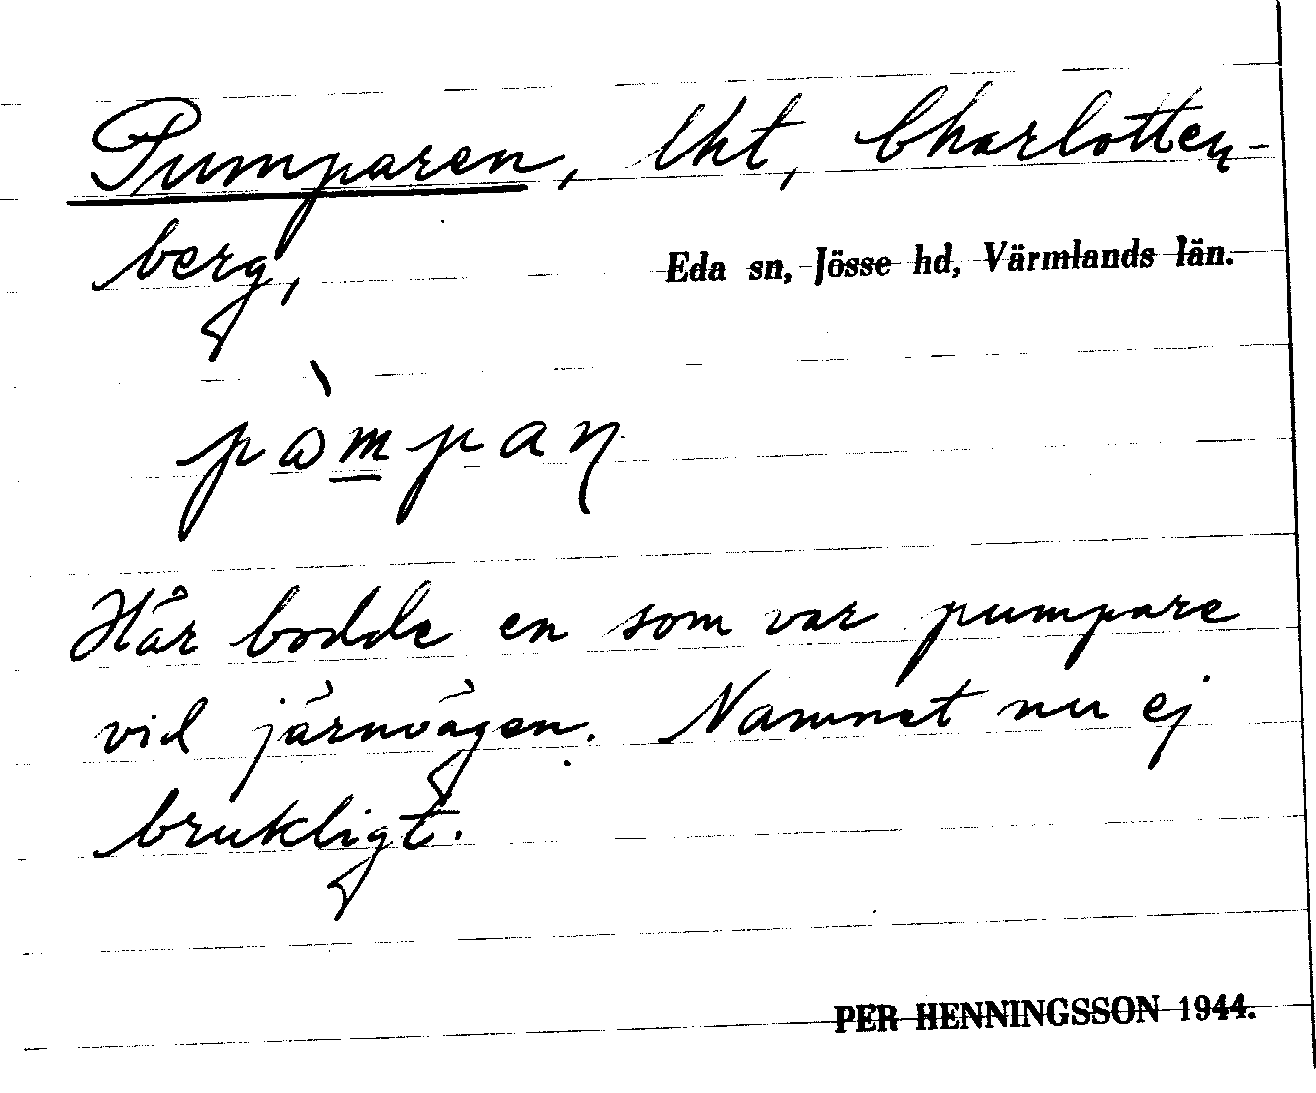 Pumparen, lht, Charlotten-
berg,
Eda sn, Jösse hd, Värmlands län.
pὼmpaꞑ
Här bodde en som var pumpare
vid järnvägen. Namnet nu ej
brukligt.
PER HENNINGSSON 1944.